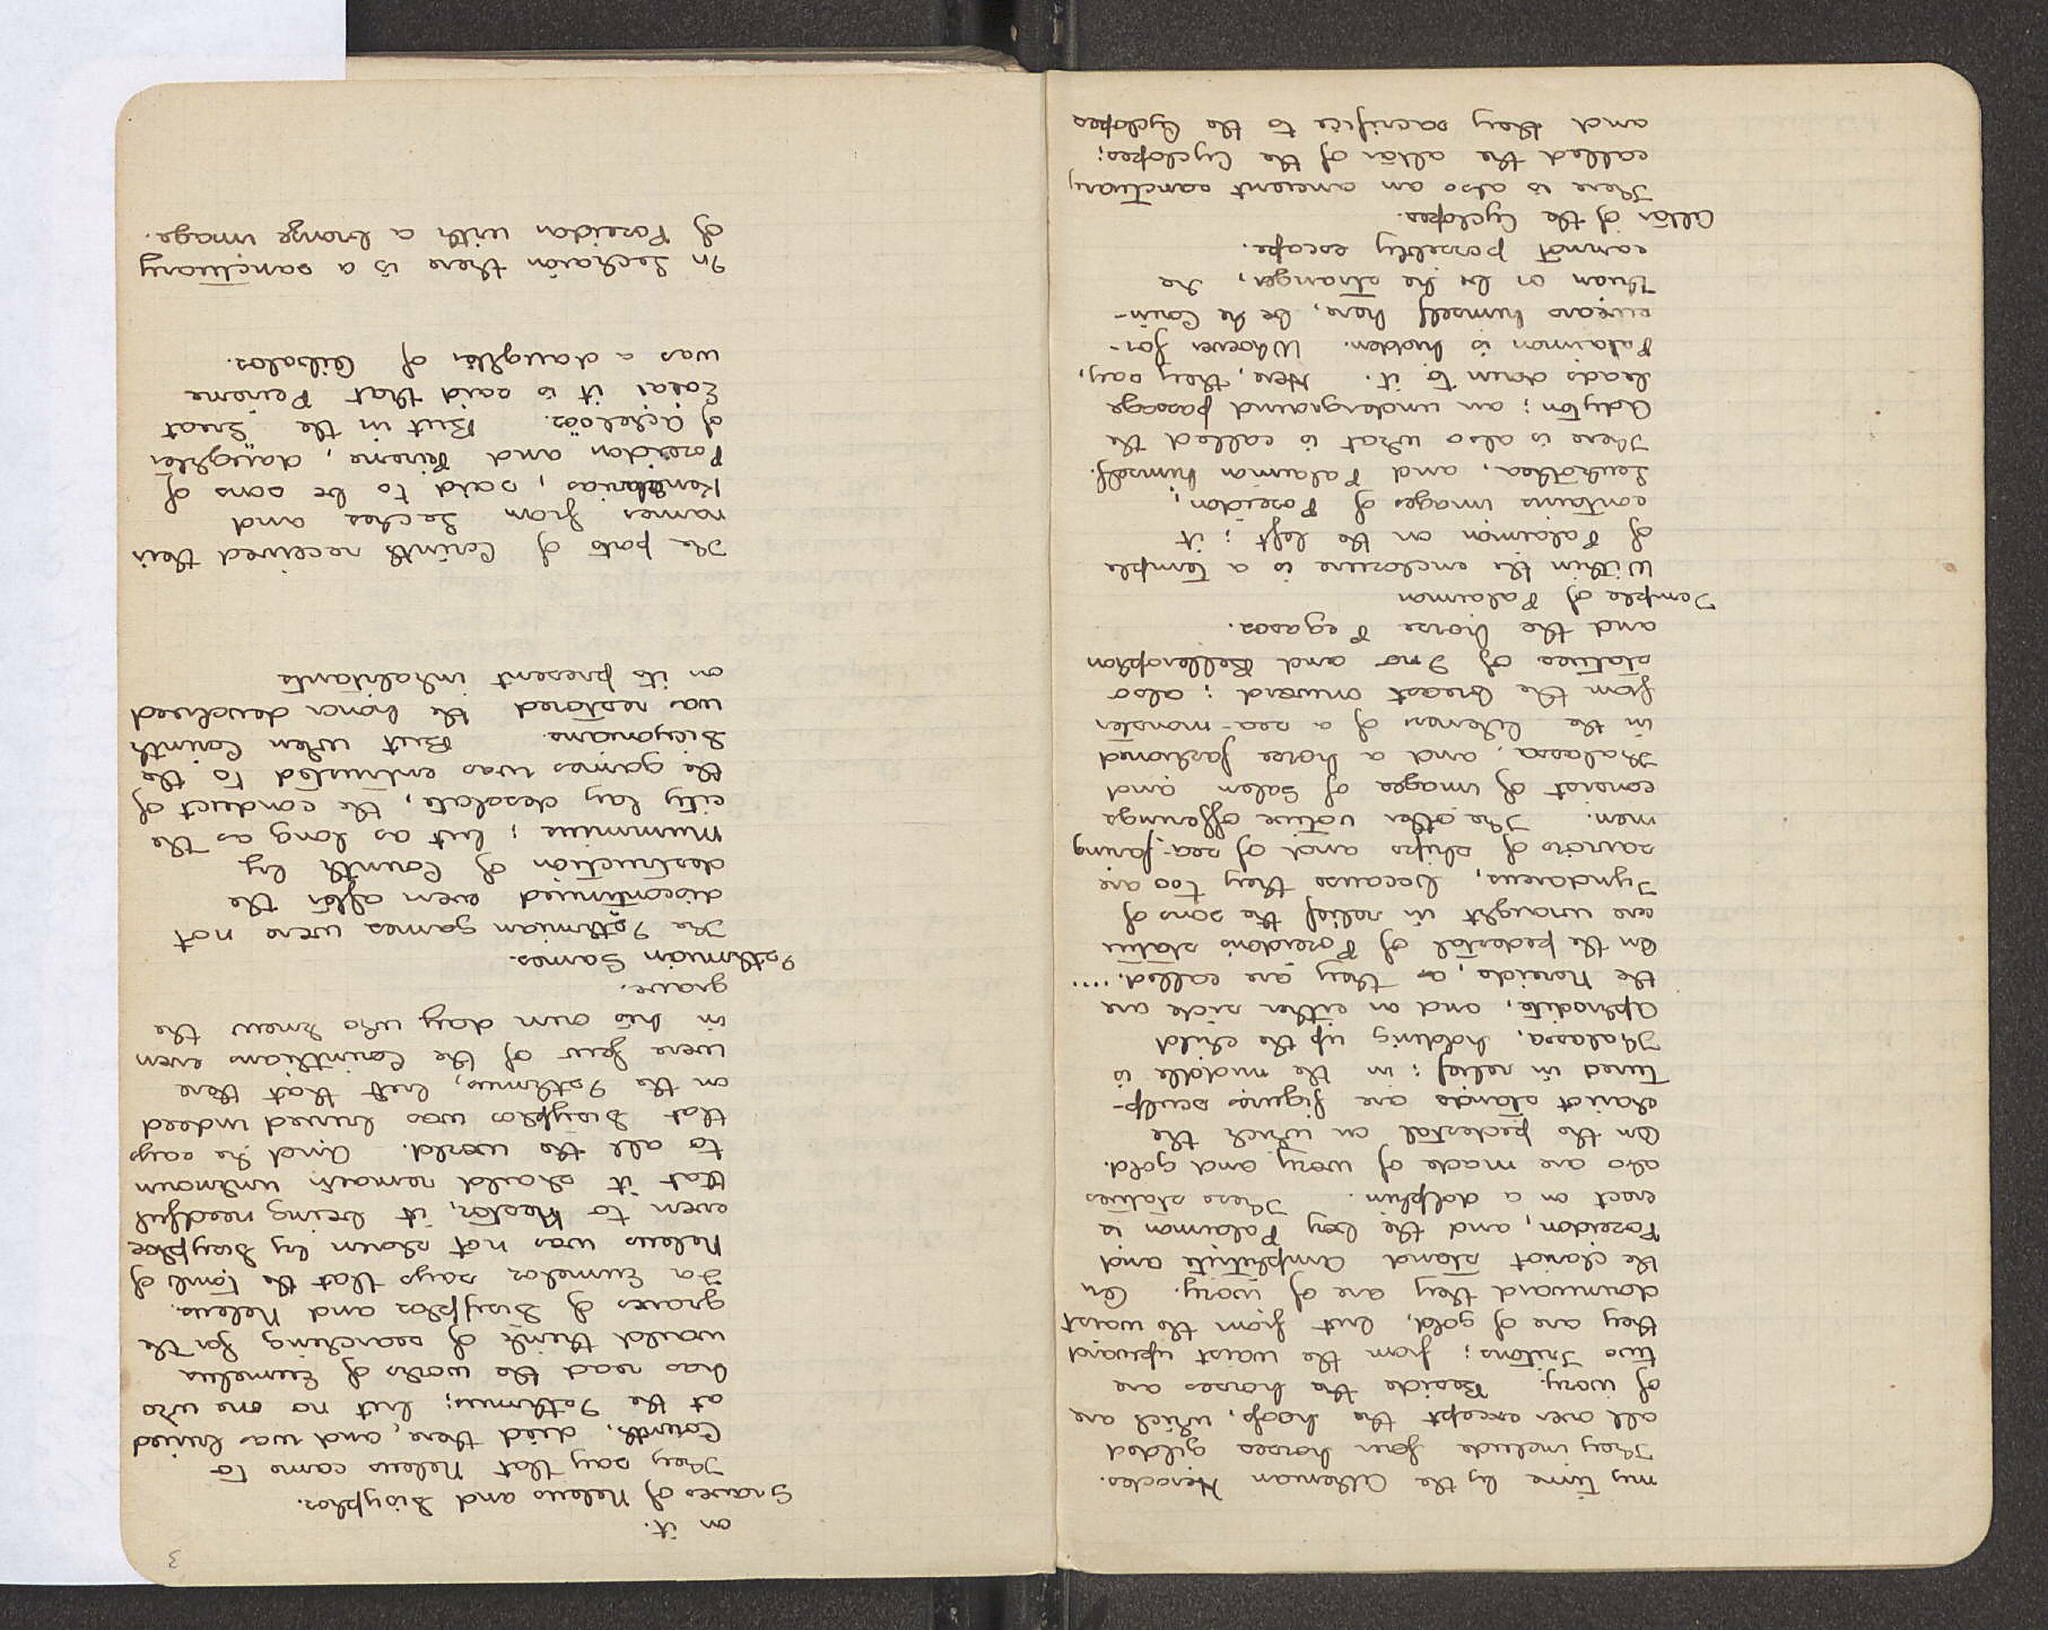 my time by the Athenian Herodes.
They include four horses gilded
all over except the hoofs, which are
of ivory. Beside the horses are
two Tritons; from the waist upward
they are of gold, but from the waist
downward they are of ivory. On
the chariot stand Amphitrite and
Poseidon, and the boy Palaimon is
erect on a dolphin. These statues
also are made of ivory and gold.
On the pedestal on which the
chariot stands are figures sculp-
tured in relief: in the middle is
Thalassa, holding up the child
Aphrodite, and on either side are
the Nereids, as they are called. ....
On the pedestal of Poseidons statue
are wrought in relief the sons of
Tyndareus, because they too are
saviors of ships and of sea-faring
men. The other votive offerings
consist of images of Galen and
Thalassa, and a horse fashioned
in the likeness of a sea-monster
from the breast onward; also
statues of Ino and Bellerophon
and the horse Pegasos.
Temple of Palaimon
Within the enclosure is a temple
of Palaimon on the left; it
contains images of Poseidon,
Leukothea, and Palaimon himself.
There is also what is called the
Adyton; an underground passage
leads down to it. Here, they say,
Palaimon is hidden. Whoever for-
swears himself here, be he Corin-
thian or be he stranger, he
cannot possibly escape.
Altar of the Cyclopes.
There is also an ancient sanctuary
called the altar of the Cyclopes;
and they sacrifice to the Cyclopes
3
on it.
Graves of Neleus and Sisyphos.
They say that Neleus came to
Corinth, died there, and was buried
at the Isthmus; but no one who
has read the works of Eumelus
would think of searching for the
graves of Sisyphos and Neleus.
For Eumelos says that the tomb of
Neleus was not shown by Sisyphos
even to Nestor, it being needful
that it should remain unknown
to all the world. And he says
that Sisyphos was buried indeed
on the Isthmus, but that there
were few of the Corinthians even
in his own day who knew the
grave.
Isthmian Games.
The Isthmian games were not
discontinued even after the
destruction of Corinth by
Mummius; but as long as the
city lay desolate, the conduct of
the games was entrusted to the
Sicyonians. But when Corinth
was restored the honor devolved
on its present inhabitants
The ports of Corinth received their
names from Leches and
Kenchrias, said to be sons of
Poseidon and Peirene, daughter
of Acheloös. But in the Great
Eoiai it is said that Peirene
was a daughter of Oibalos.
In Lechaion there is a sanctuary
of Poseidon with a bronze image.